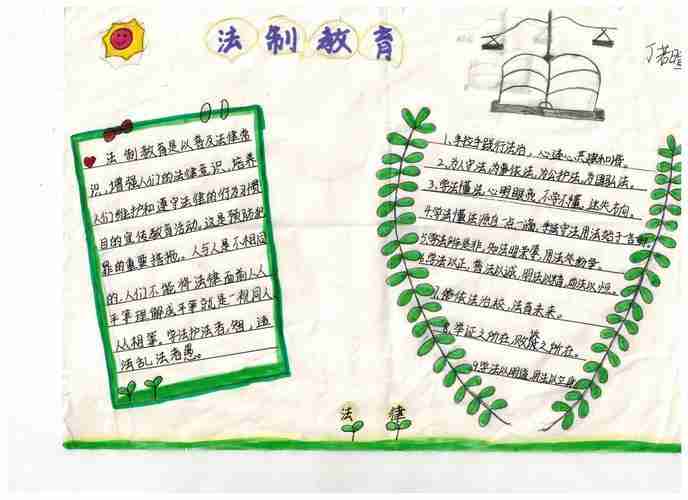 法制教育
丁若
法制教育是以普及法律常
识,增强人们的法律意识,培养
人们维护和遵守法律的行为习惯
目的宣传教育活动。这是预防犯
罪的重要措施。人与人是不相同
的,人们不能将法律面前人人
平等理解成平等就是一视同人
人人相等。学法护法者,智,违
法乱法者愚。
1.手拉手践行法治,心连心共建和谐。
2.为人守法,为事依法,为公护法,为国弘法。
3.学法懂法,心明眼亮,不学不懂,迷失方向。
4.学法懂法源自一点一滴,
5.学法辨是非,知法明荣辱,用法
6.学法以正,普法以诚,用法以精,
7.依法治校,法育未来。
8.学证之所在,败
9.学法以明德,用法以立身
法 律